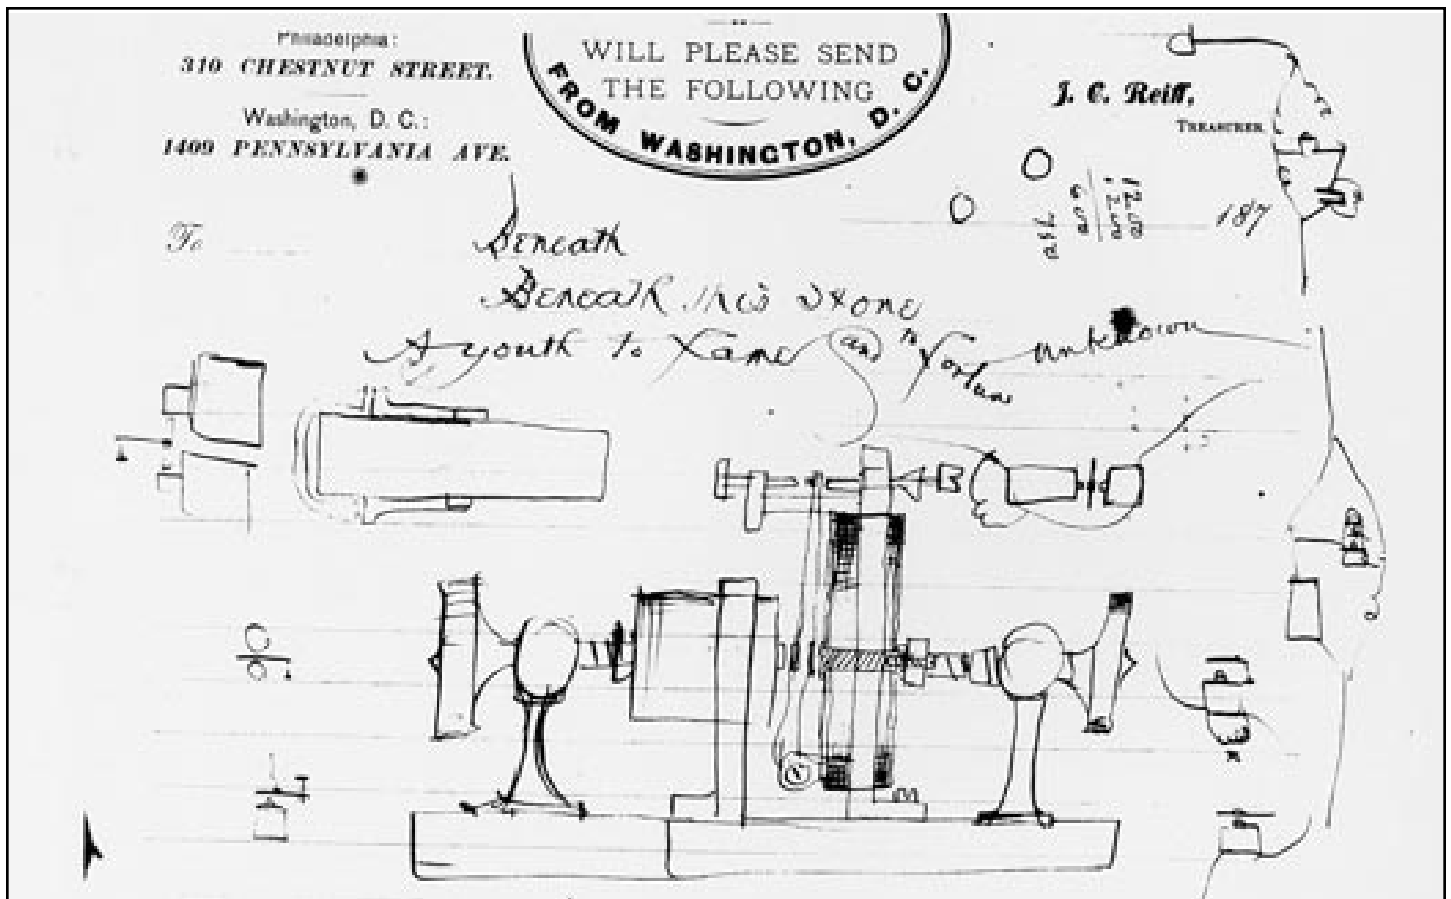 Philadelphia:
310 CHESTNUT STREET.
Washington, D. C.:
1409 PENNSYLVANIA AVE.
WILL PLEASE SEND
THE FOLLOWING
FROM WASHINGTON, D. C.
J. C. Reiff,
TREASURER
187
To
Beneath
Beneath this stone
A youth to Fame and to Fortune unknown